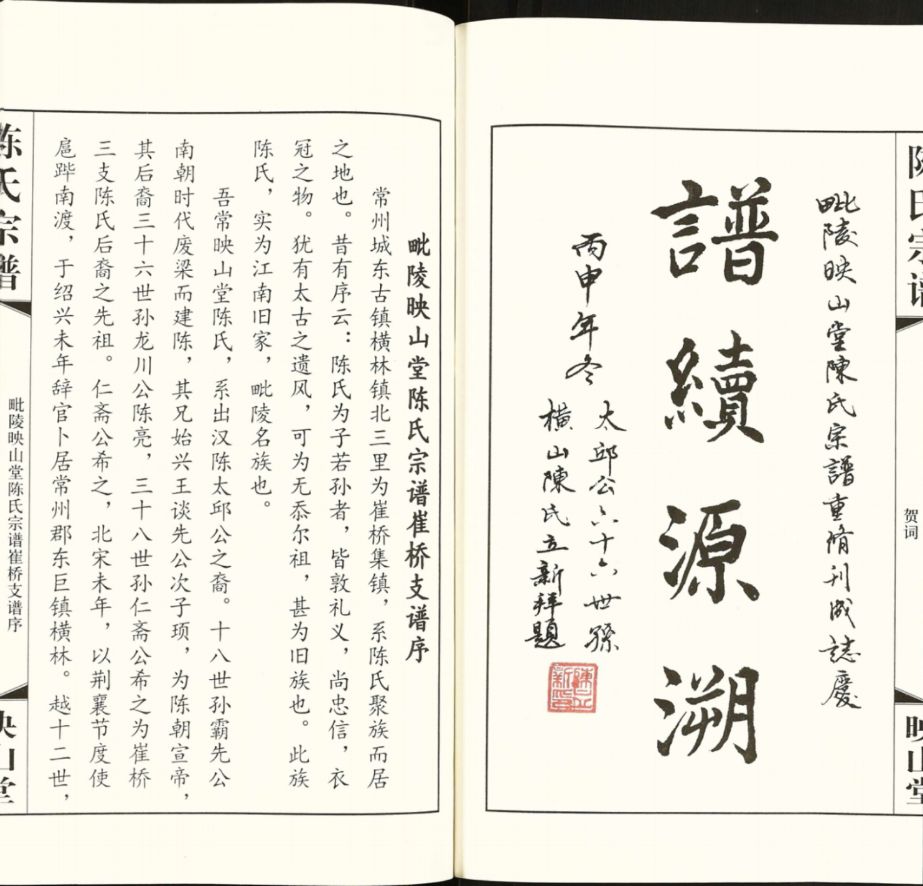 陳氏宗谱
贺词
映山堂
毗陵映山堂陳氏宗譜重脩刊成誌慶
譜續源溯
丙申年冬
太邱公六十六世孫
橫山陳氏立新拜題
毗陵映山堂陈氏宗谱崔桥支谱序
常州城东古镇横林镇北三里为崔桥集镇，系陈氏聚族而居
之地也。昔有序云：陈氏为子若孙者，皆敦礼义，尚忠信，衣
冠之物。犹有太古之遗风，可为无忝尔祖，甚为旧族也。此族
陈氏，实为江南旧家，毗陵名族也。
吾常映山堂陈氏，系出汉陈太邱公之裔。十八世孙霸先公
南朝时代废梁而建陈，其兄始兴王谈先公次子顼，为陈朝宣帝，
其后裔三十六世孙龙川公陈亮，三十八世孙仁斋公希之为崔桥
三支陈氏后裔之先祖。仁斋公希之，北宋未年，以荆襄节度使
扈跸南渡，于绍兴未年辞官卜居常州郡东巨镇横林。越十二世，
陈氏宗譜
毗陵映山堂陈氏宗谱崔桥支谱序
映山堂